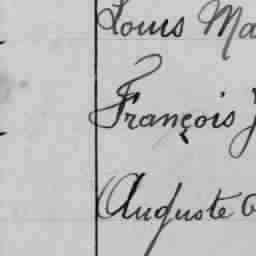 Louis Ma
François J
Auguste